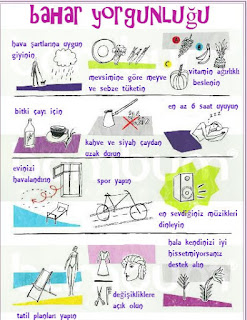 bahar yorgunluğu
hava şartlarına uygun
giyinin
mevsimine göre meyve
ve sebze tüketin
A
B
C
vitamin ağırlıklı
beslenin
bitki çayı için
kahve ve siyah çaydan
uzak durun
en az 6 saat uyuyun
evinizi
havalandırın
spor yapın
en sevdiğiniz müzikleri
dinleyin
tatil planları yapın
değişikliklere
açık olun
hala kendinizi iyi
hissetmiyorsanız
destek alın